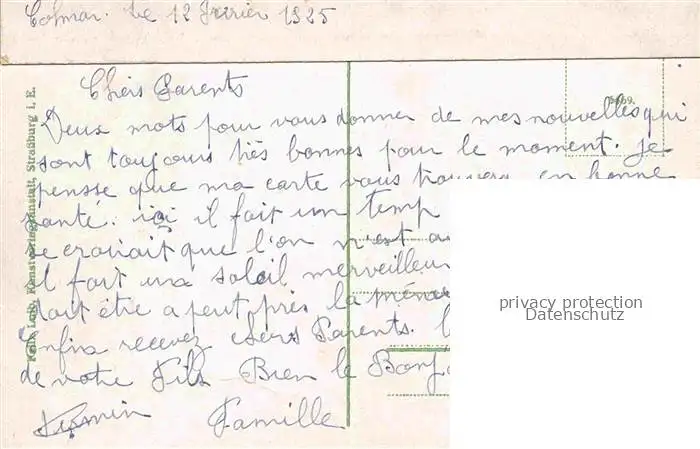 Colmar. le 12 Fevrier 1925
Chers Parents
Deux mots pour vous donner de mes nouvelles qui
sont toujours très bonnes pour le moment. Je
pensse que ma carte vous trouvera en bonne
santé. ici il fait un temp
se croirait que l'on n'est a
il fait un soleil merveilleu
doit être a peut près la même
Enfin recevez chers Parents.
de votre Fils Bien le Bonj
Firmin Famille
5669.
Felix Luib, Kunstverlagsanstalt, Straßburg i. E.
privacy protection
Datenschutz